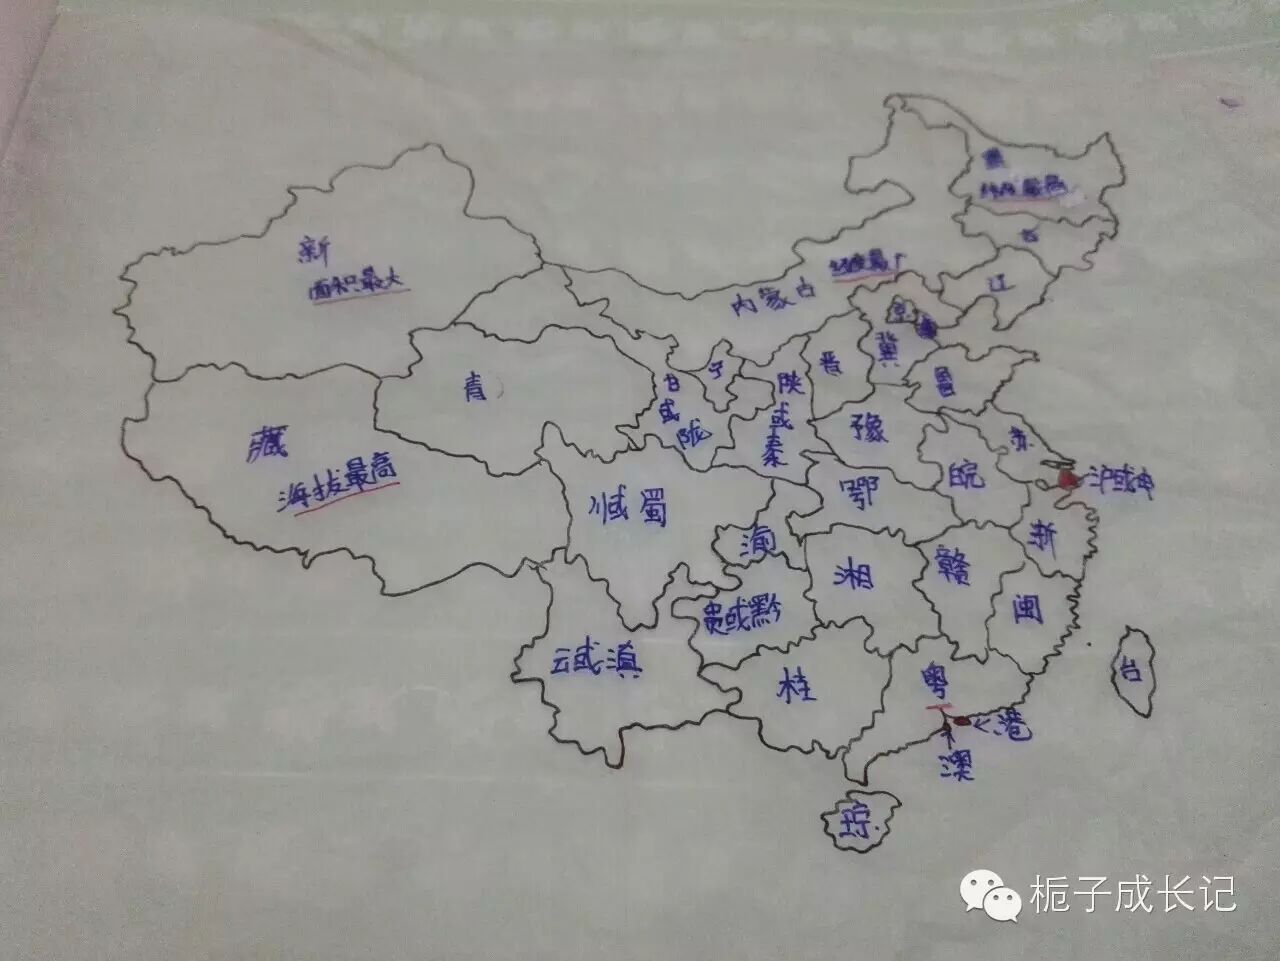 黑
纬度最高
吉
辽
新
面积最大
内蒙古
经度最广
京
冀
晋
宁
甘
或
陇
陕
或
秦
青
鲁
藏
海拔最高
豫
苏
皖
沪或申
川或蜀
鄂
渝
浙
湘
赣
闽
贵或黔
云或滇
桂
粤
台
港
澳
栀子成长记